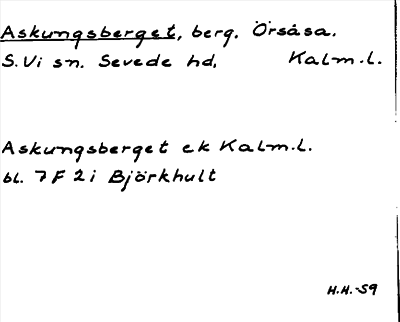 Askungsberget, berg. Örsåsa.
S. Vi sn. Sevede hd. Kalm.l.
Askungsberget ek Kalm.l.
bl. 7 F 2 i Björkhult
H.H.-59